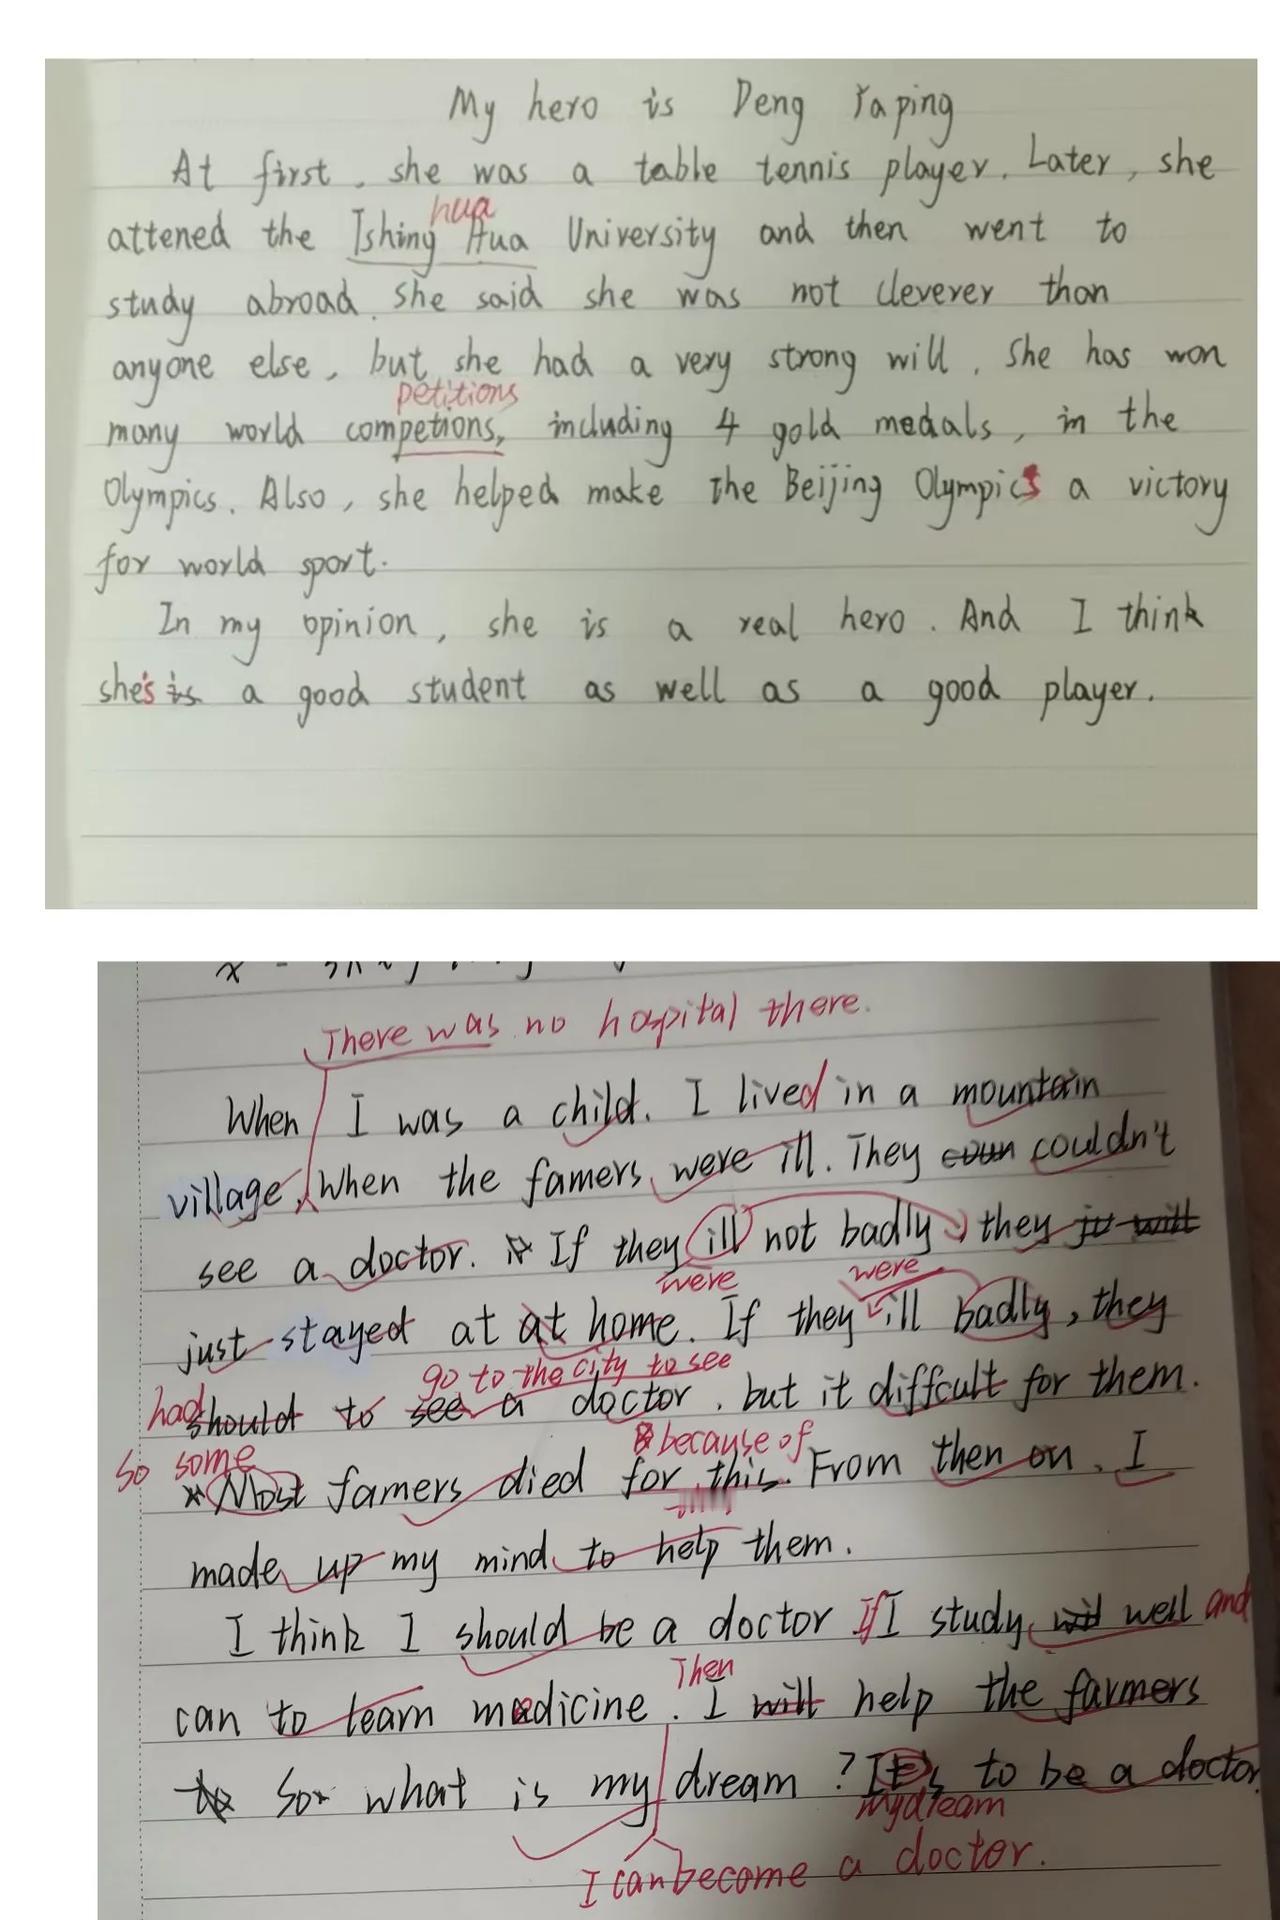 My hero is Deng Yaping
At first, she was a table tennis player. Later, she
hua
attened the Tshing Hua University and then went to
study abroad. She said she was not cleverer than
anyone else, but she had a very strong will. She has won
petitions
many world competions, including 4 gold medals, in the
Olympics. Also, she helped make the Beijing Olympics a victory
for world sport.
In my opinion, she is a real hero. And I think
she's is a good student as well as a good player.
There was no hospital there.
When I was a child. I lived in a mountain
village, When the famers were ill. They couldn't
see a doctor. If they ill not badly, they will
were were
just stayed at at home. If they ill badly, they
go to the city to see
had should to see a doctor, but it diffcult for them.
because of
so some
Most famers died for this. From then on, I
made up my mind to help them.
I think I should be a doctor If I study well and
Then
can to learn medicine. I will help the farmers
So what is my dream? It's to be a doctor
my dream
I can become a doctor.